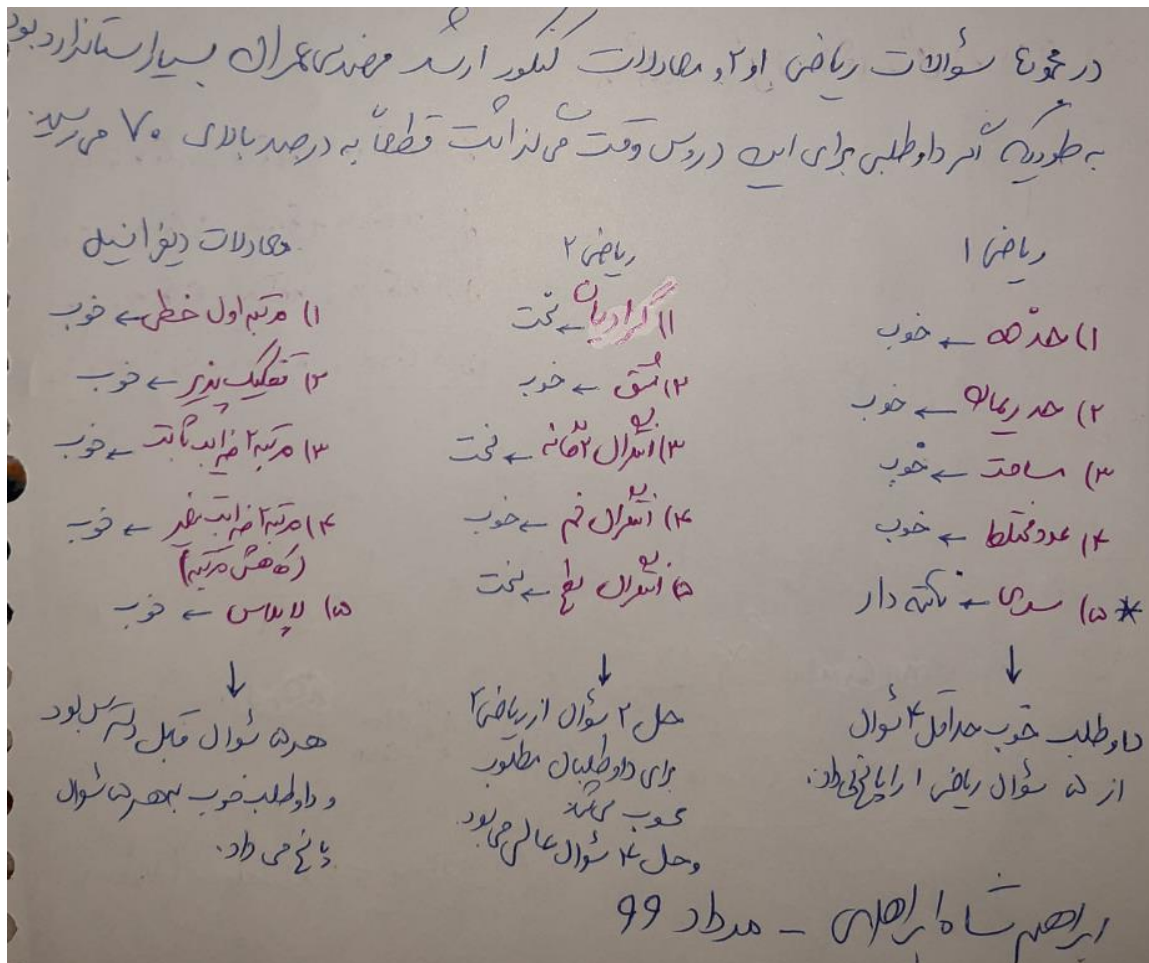 در مجموع سؤالات ریاضی ۱و۲ و معادلات کنکور ارشد مهندسی عمران بسیار استاندارد بود
به طوریکه اگر داوطلبی برای این دروس وقت می‌گذاشت قطعاً به درصد بالای ۷۰ می‌رسید
ریاضی ۱
۱) حد ← خوب
۲) حد ریمان ← خوب
۳) مساحت ← خوب
۴) عدد مختلط ← خوب
* ۵) سری ← نکته دار
↓
داوطلب خوب حداقل ۴ سؤال
از ۵ سؤال ریاضی ۱ را پاسخ می‌داد.
ریاضی ۲
۱) گرادیان ← سخت
۲) مشتق ← خوب
۳) انتگرال ۲گانه ← سخت
۴) انتگرال خم ← خوب
۵) انتگرال سطح ← سخت
↓
حل ۲ سؤال از ریاضی ۲
برای داوطلبان مطلوب
محسوب می‌شد
و حل ۴ سؤال عالی می‌بود.
معادلات دیفرانسیل
۱) مرتبه اول خطی ← خوب
۲) تفکیک پذیر ← خوب
۳) مرتبه ۲ ضرایب ثابت ← خوب
۴) مرتبه ۲ ضرایب متغیر ← خوب
(کاهش مرتبه)
۵) لاپلاس ← خوب
↓
هر ۵ سؤال قابل دسترس بود
و داوطلب خوب به هر ۵ سؤال
پاسخ می داد.
ابراهیم شاه ابراهیمی - مرداد 99